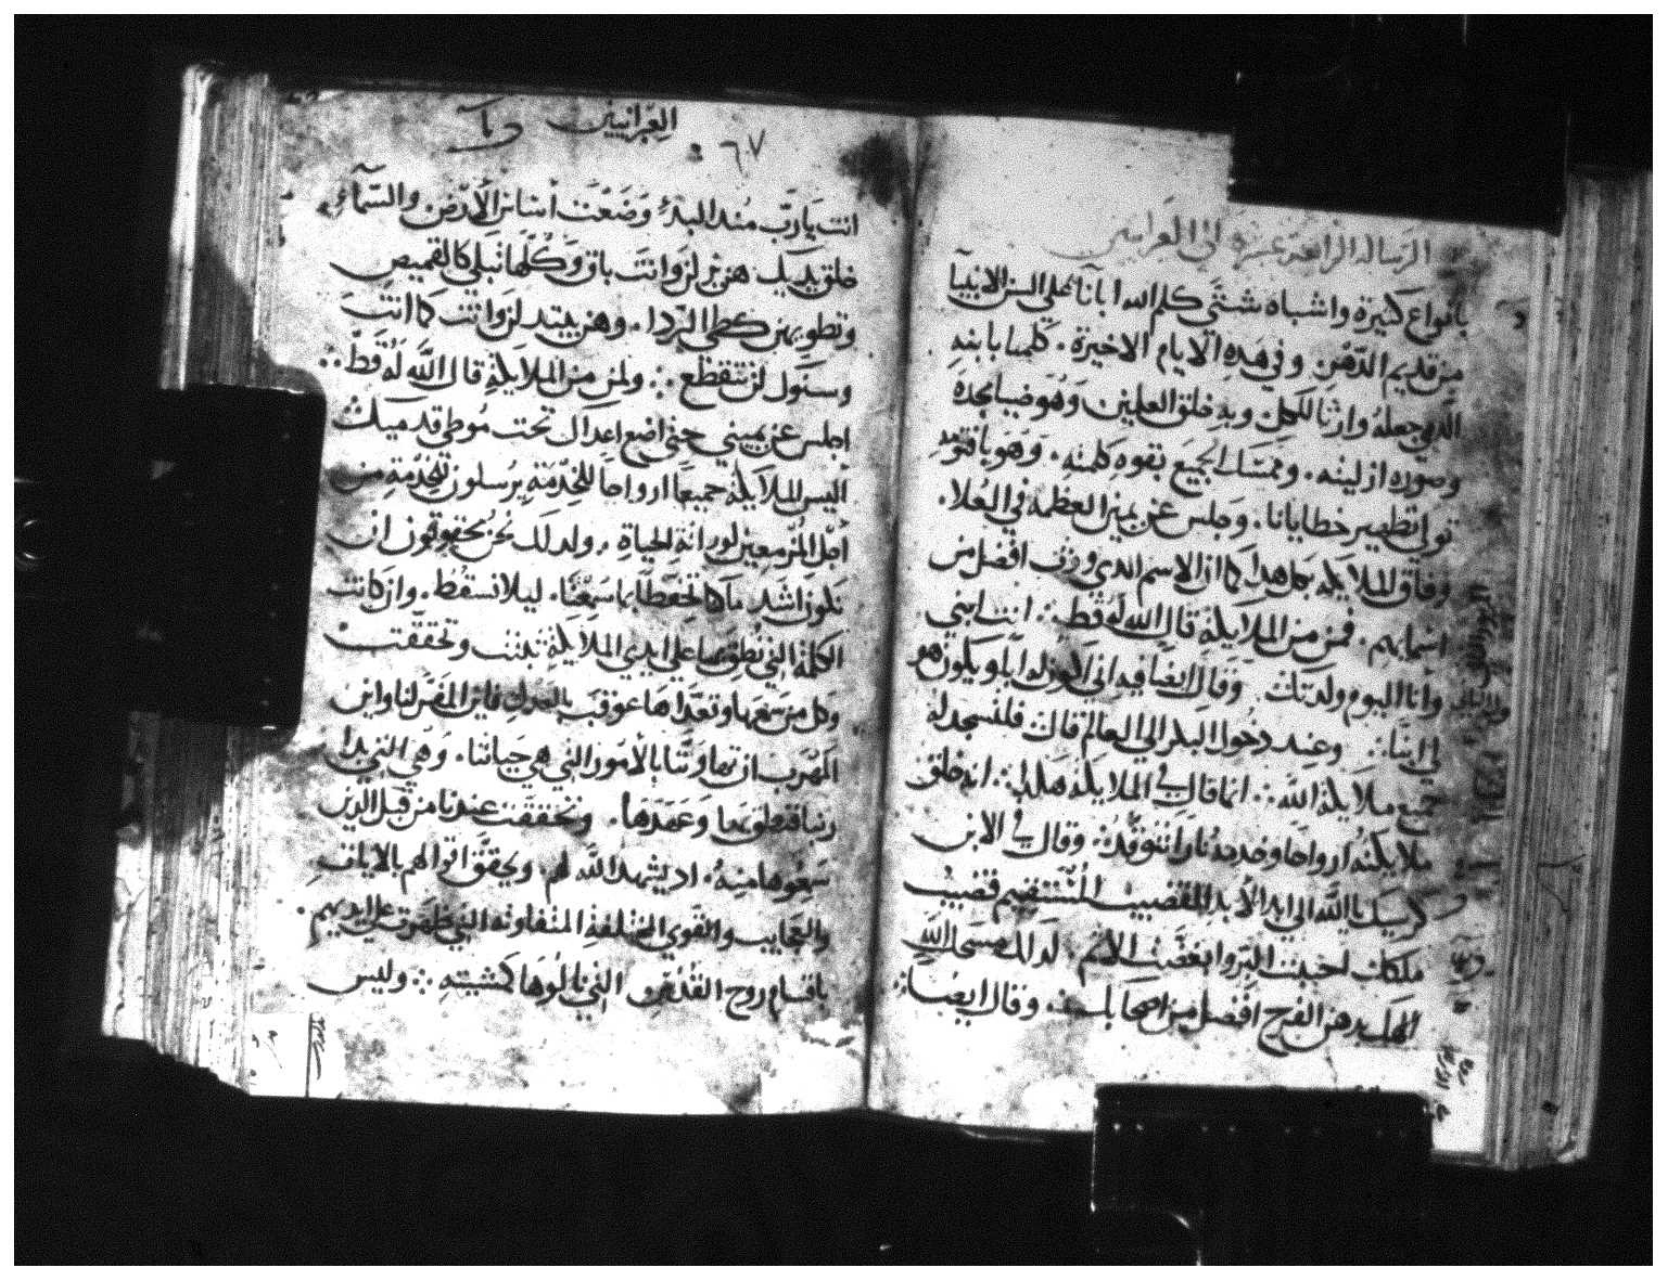 الرساله الرابعة عشرة الى العبرانيين
بانواع كثيرة واشباه شتى كلم الله ابآنا على السن الانبيآ
من قديم الدهر. وفي هذه الايام الاخيرة. كلمنا بابنه
الدي جعله وارثا للكل وبه خلق العلمين وهو ضيا مجده
وصوره ازليته. وممسك الجميع بقوه كلمته. وهو باقنومه
تولى تطهير خطايانا. وجلس عن يمين العظمه في العلا.
وفاق الملايكه بكل هدا كما ان الاسم الدي ورث افضل من
اسمايهم. فمن من الملايكة قال الله له قط: انت ابني
وانا اليوم ولدتك. وقال ايضا فيه اني اكون له ابا ويكون هو
لي ابنا. وعند دخول البكر الى العالم قال فلتسجد له
جميع ملايكة الله: انما قال في الملايكة هكدا: انه خلق
ملايكته ارواحا وخدمه نارا تتوقد: وقال في الابن
كرسيك يا الله الى ابد الابد القضيب المستقيم قضيب
ملكك احببت البر وابغضت الاثم. لدلك مسحك الله
الهك بدهن الفرح افضل من اصحابك. وقال ايضا:
العبرانيين
٦٧
انت يا رب مند البدء وضعت أساس الأرض والسمآء
خلق يديك هن يزلن وانت باق وكلها تبلى كالقميص
وتطويهن كطي الردا. وهن يبتدلن وانت كما انت
وسنوك لن تنقطع: ولمن من الملايكة قال الله له قط:
اجلس عن يميني حتى اضع اعداك تحت موطي قدميك
اليس الملايكة جميعا ارواحا للخدمة يرسلون للخدمة من
أجل المزمعين لوراثة الحياة. ولدلك نحن يحقوقون ان
نكون اشد ما كنا تحفظا بما سمعنا. ليلا نسقط. وان كانت
الكلمة التي نطق بها على ايدي الملايكة ثبتت وتحققت
وكل من سمعها وتعداها عوقب بالعدل فاين المفر لنا واين
المهرب ان تهاونا بالأمور التي هي حياتنا. وهي التي بدا
ربنا فنطق بها وعمدها. وتحققت عندنا من قبل الدين
سمعوها منه. اد يشهد الله لهم. ويحقق اقوالهم بالايات
والعجايب والقوى المختلفة المتفاوته التي ظهرت على ايديهم
باقسام روح القدس التي نالوها كمشيته: وليس